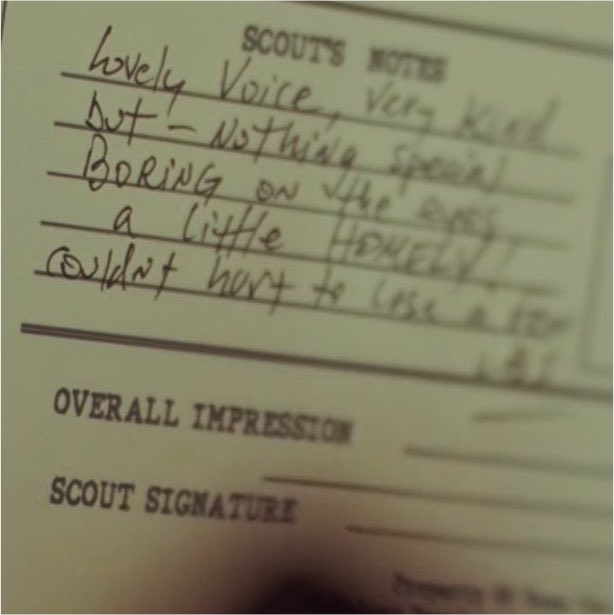 SCOUT'S NOTES
Lovely Voice, Very Kind
but - Nothing Special
BORING ON the eyes,
a little HOMELY!
couldn't hurt to lose a few
LBS
OVERALL IMPRESSION
SCOUT SIGNATURE